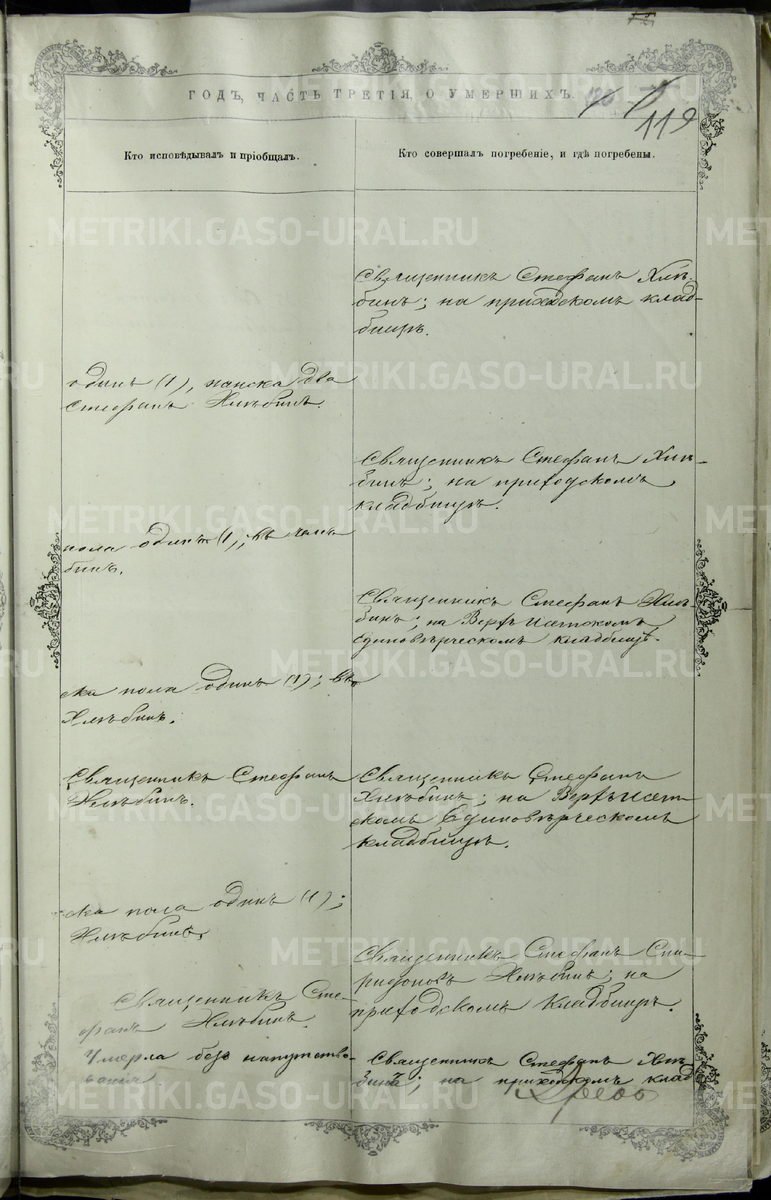 ГОДЪ, ЧАСТЬ ТРЕТІЯ, О УМЕРШИХЪ.
119
Кто исповѣдывалъ и пріобщалъ.
Кто совершалъ погребеніе, и гдѣ погребены.
Священникъ Стефанъ Хлѣ-
бинъ; на приходскомъ клад-
бищѣ.
одинъ (1), женска два
Стефанъ Хлѣбинъ.
Священникъ Стефанъ Хлѣ-
бинъ; на приходскомъ
кладбищѣ.
пола одинъ (1);
бинъ.
Священникъ Стефанъ Хлѣ-
бинъ; на Верхъ Исетскомъ
Единовѣрческомъ кладбищѣ.
ска пола одинъ (1);
Хлѣбинъ.
Священникъ Стефанъ
Хлѣбинъ.
Священникъ Стефанъ
Хлѣбинъ; на Верхъ Исет-
скомъ Единовѣрческомъ
кладбищѣ.
ска пола одинъ (1);
Хлѣбинъ.
Священникъ Стефанъ Спи-
ридоновъ Хлѣбинъ; на
приходскомъ кладбищѣ.
Священникъ Сте-
фанъ Хлѣбинъ.
Умерла безъ напутство-
ванія
Священникъ Стефанъ Хлѣ-
бинъ; на приходскомъ клад
METRIKI.GASO-URAL.RU